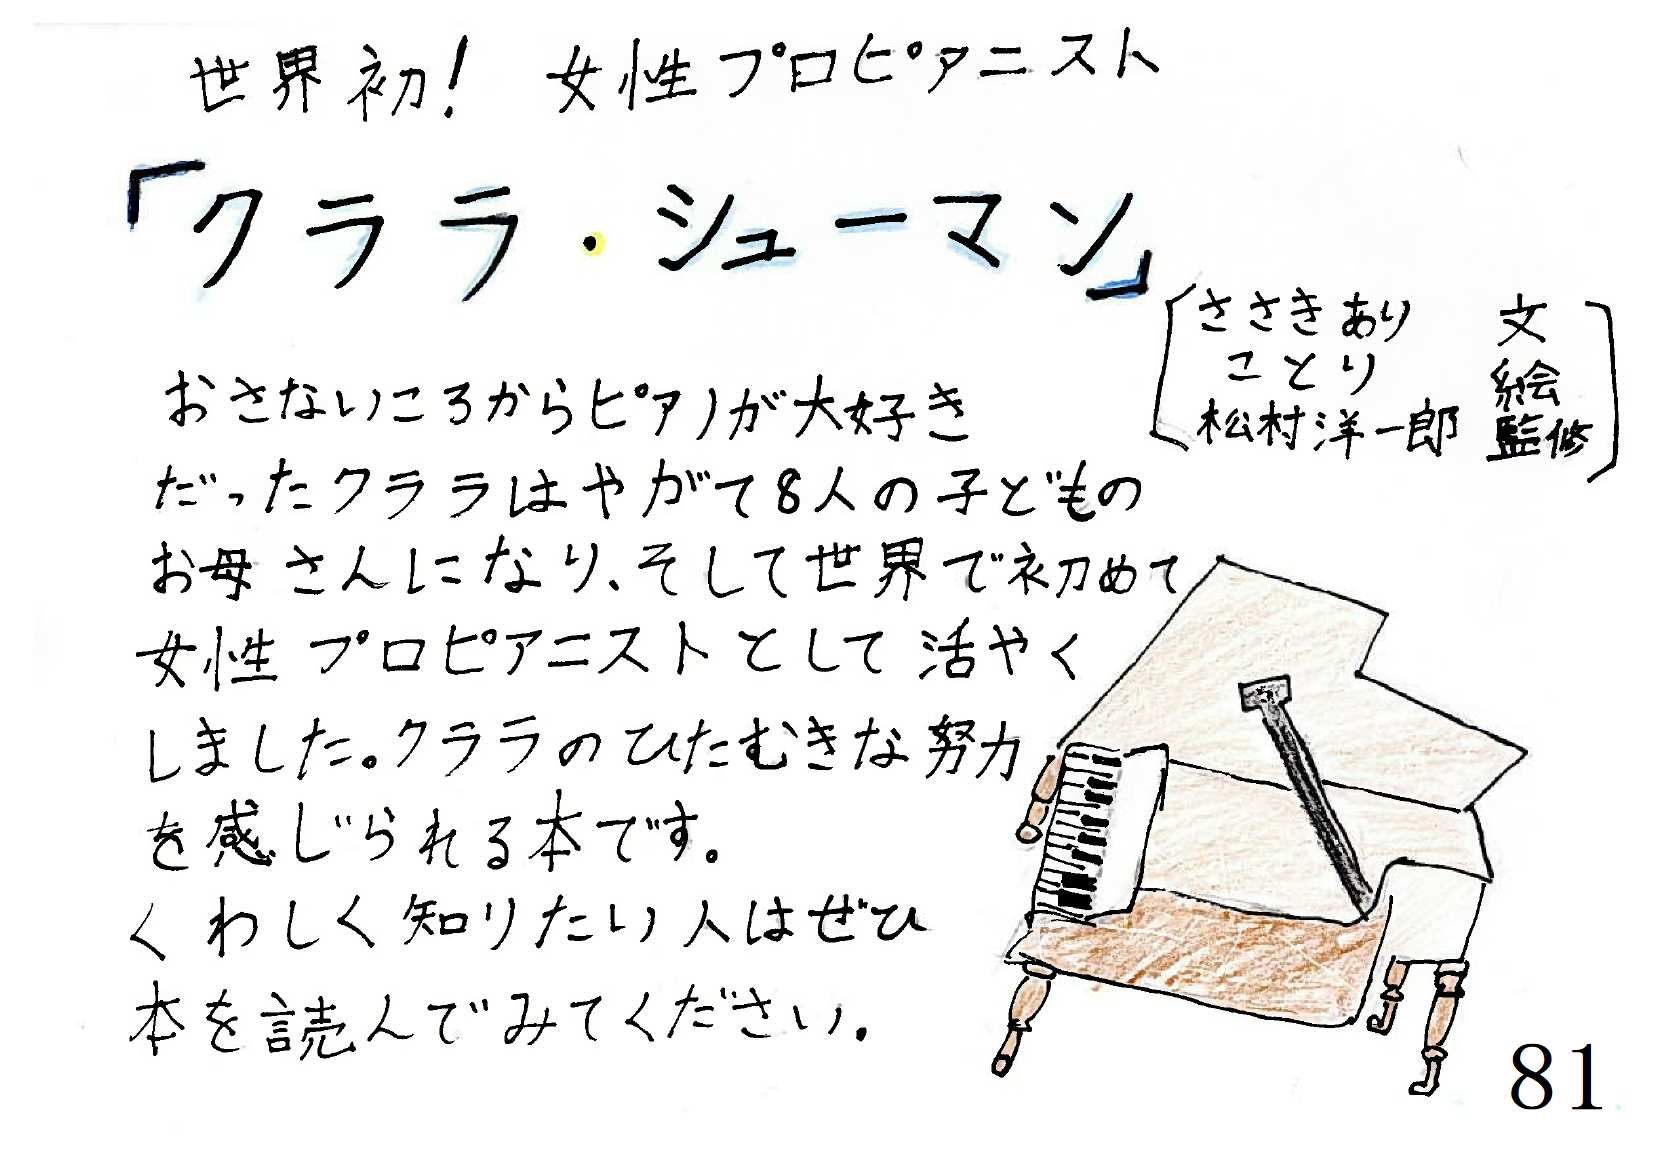 世界初! 女性プロピアニスト
「クララ・シューマン」
ささきあり 文
ことり 絵
松村洋一郎 監修
おさないころからピアノが大好き
だったクララはやがて8人の子どもの
お母さんになり、そして世界で初めて
女性プロピアニストとして活やく
しました。クララのひたむきな努力
を感じられる本です。
くわしく知りたい人はぜひ
本を読んでみてください.
81